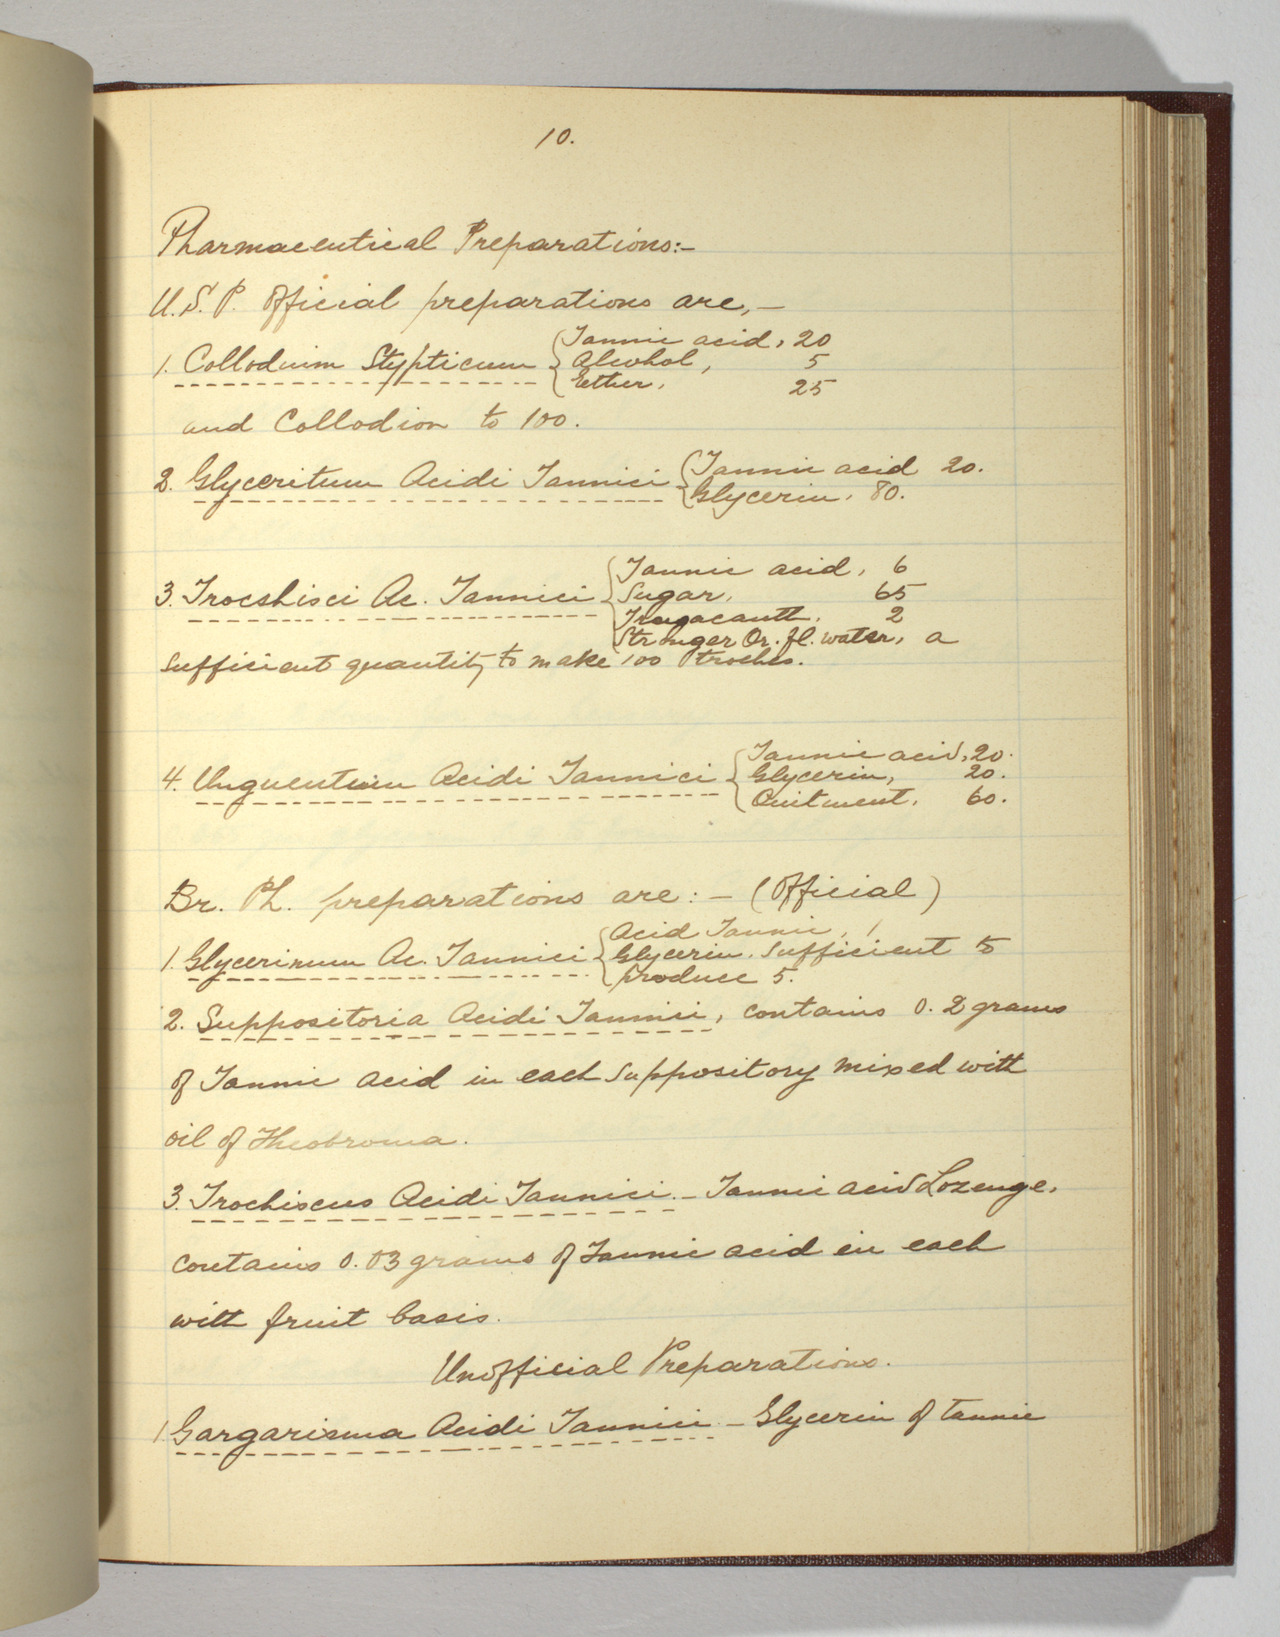 10.
Pharmaceutical Preparations:-
U.S.P. Official preparations are,-
Tannic acid, 20
1. Collodium Stypticum { Alcohol, 5
Eether, 25
and Collodion to 100.
2. Glyceritum Acidi Tannici { Tannic acid 20.
Glycerin, 80.
Tannic acid, 6
3. Trocshisci Ac. Tannici { Sugar, 65
Tragacanth, 2
Stronger Or. fl. water, a
sufficient quantity to make 100 troches.
Tannic acid, 20.
4. Unguentum Acidi Tannici { Glycerin, 20.
Ointment, 60.
Br. Ph. preparations are:- (Official)
Acid Tannic, 1
1. Glycerinum Ac. Tannici { Glycerin. Sufficient to
produce 5.
2. Suppositoria Acidi Tannici, contains 0.2 grams
of Tannic acid in each suppository mixed with
oil of Theobroma.
3. Trochiscus Acidi Tannici.- Tannic acid Lozenge,
contains 0.03 grams of Tannic acid in each
with fruit basis.
Unofficial Preparations.
1 Gargarisma Acidi Tannici - Glycerin of tannic